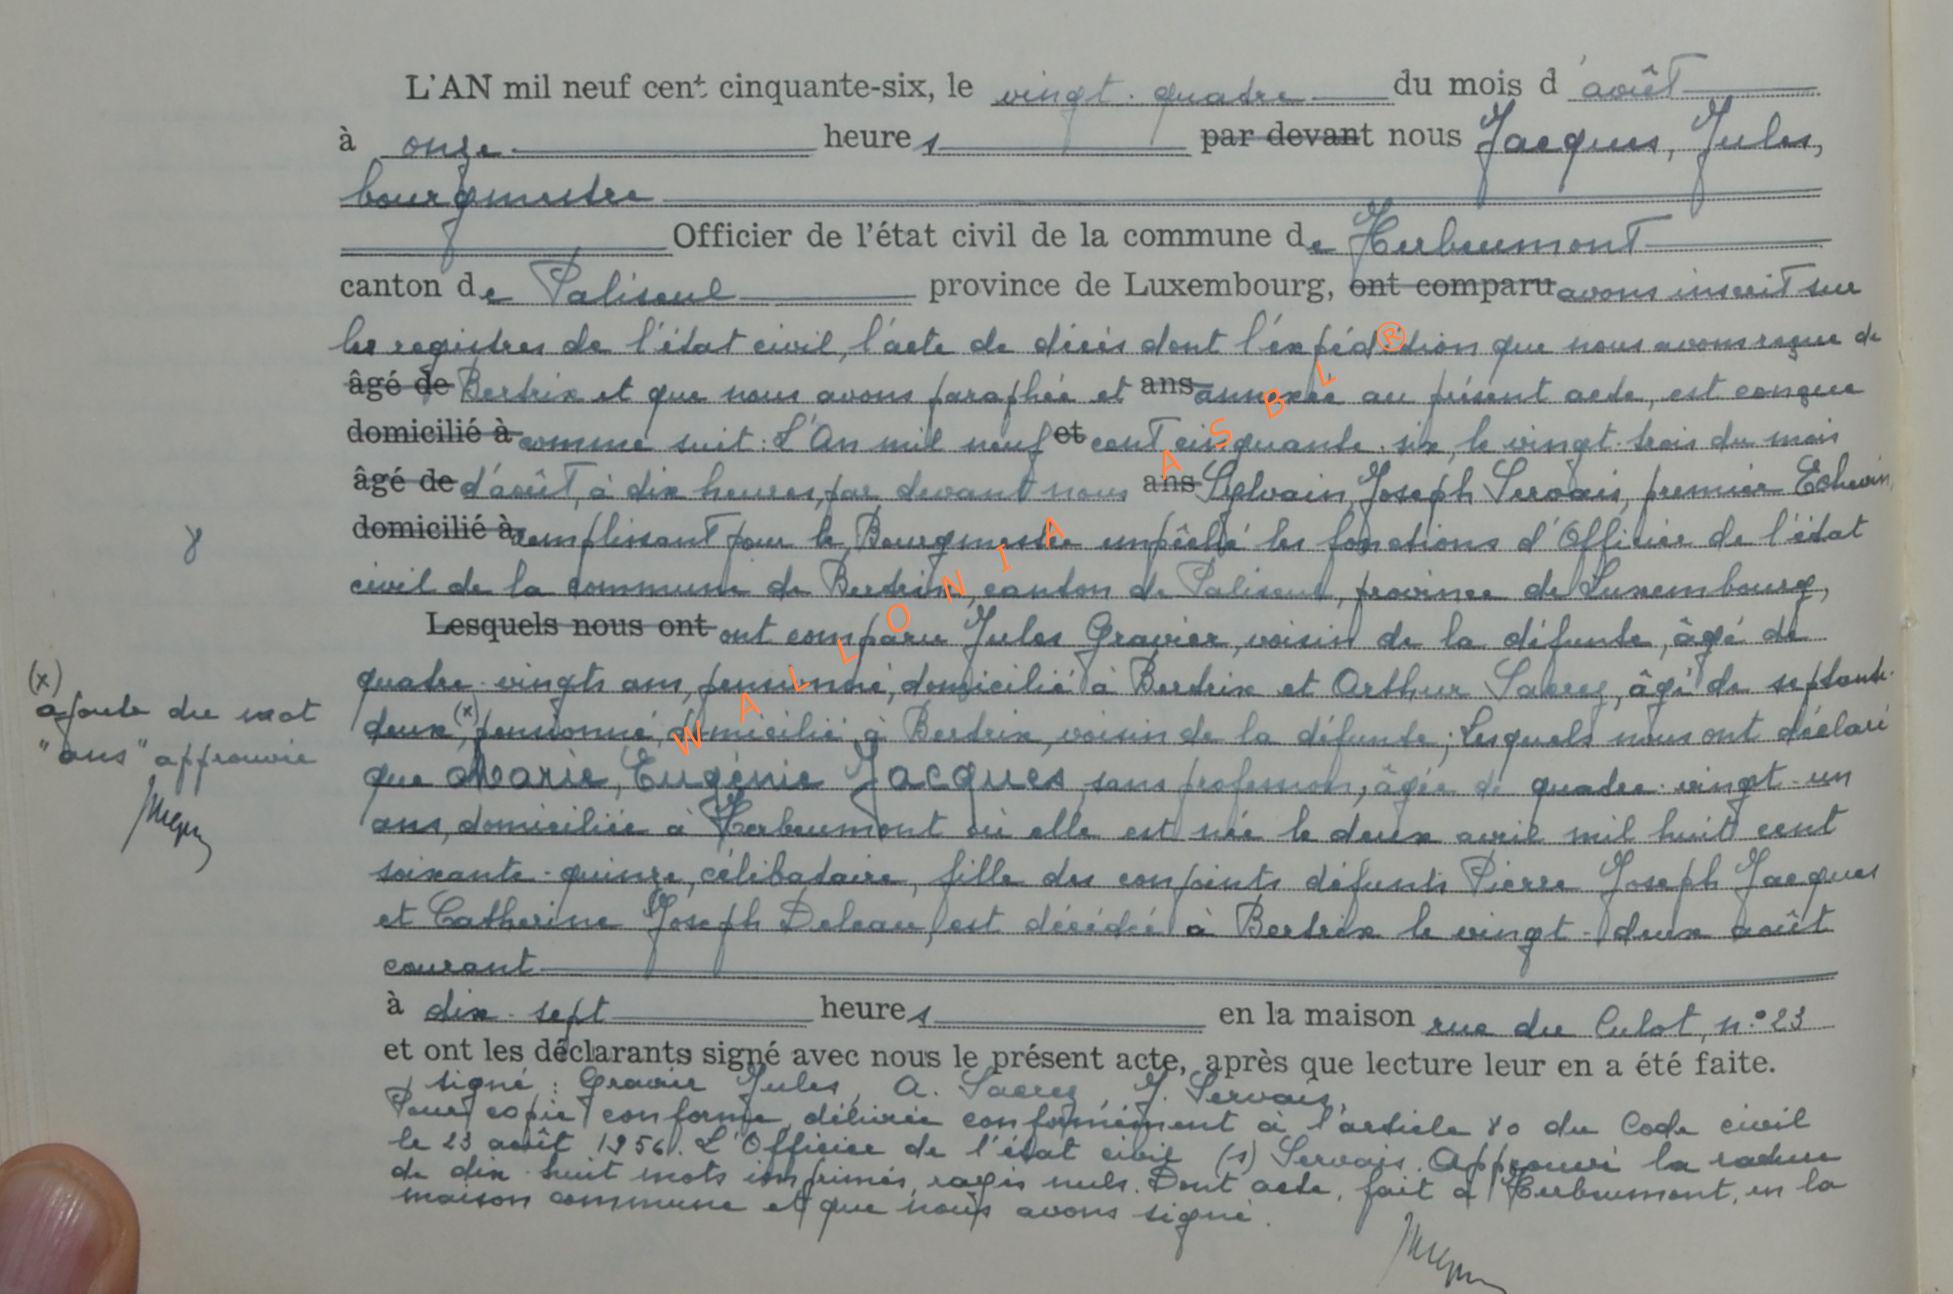 L'AN mil neuf cent cinquante-six, le vingt-quatre du mois d'août
à onze heures par devant nous Jacques, Jules,
bourgmestre
Officier de l'état civil de la commune de Herbeumont
canton de Paliseul province de Luxembourg, ont comparu avons inscrit sur
les registres de l'état civil, l'acte de décès dont l'expédition que nous avons reçue de
âgé de Bertrix et que nous avons paraphée et ans annexée au présent acte, est conçue
domicilié à comme suit : L'An mil neuf et cent cinquante-six, le vingt-trois du mois
âgé de d'août, à dix heures, par devant nous ans Sylvain, Joseph Servais, premier Echevin,
domicilié à remplissant pour le Bourgmestre empêché les fonctions d'Officier de l'état
civil de la commune de Bertrix, canton de Paliseul, province de Luxembourg,
Lesquels nous ont ont comparu Jules Gravier, voisin de la défunte, âgé de
quatre-vingts ans, pensionné, domicilié à Bertrix et Arthur Sacrez, âgé de septante-
deux (x), pensionné, domicilié à Bertrix, voisin de la défunte ; Lesquels nous ont déclaré
que Marie, Eugénie Jacques, sans profession, âgée de quatre-vingt-un
ans, domiciliée à Herbeumont où elle est née le deux avril mil huit cent
soixante-quinze, célibataire, fille des conjoints défunts Pierre Joseph Jacques
et Catherine Joseph Deleau, est décédée à Bertrix le vingt-deux août
courant
à dix-sept heures en la maison rue du Culot, n° 23
et ont les déclarants signé avec nous le présent acte, après que lecture leur en a été faite.
signé : Gravier Jules, A. Sacrez, J. Servais.
Pour copie conforme, délivrée conformément à l'article 80 du Code civil
le 23 août 1956. L'Officier de l'état civil (s) Servais. Approuvé la rature
de dix-huit mots imprimés, rayés nuls. Dont acte, fait à Herbeumont, en la
maison commune et que nous avons signé.
(x)
ajoute du mot
"ans" approuvée
WALLONIA ASBL ®